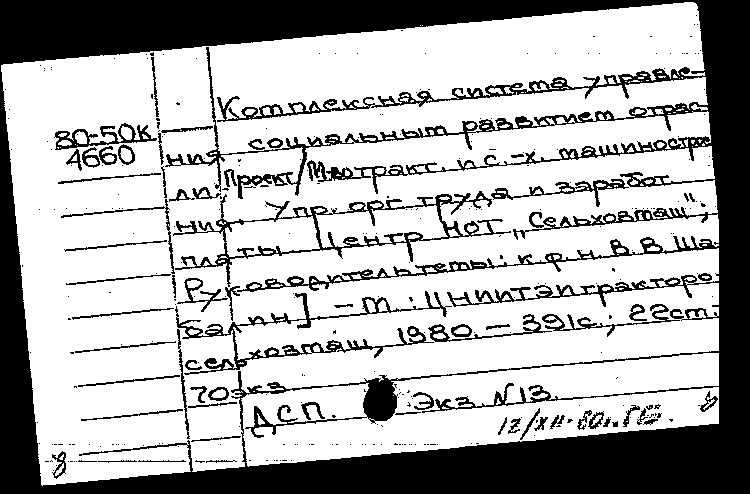 80-50к
4660
Комплексная система управле-
ния социальным развитием отрас
ли: Проект / М-во тракт. и с.-х. машинострое
ния. Упр. орг труда и заработ
платы Центр НОТ „Сельхозмаш";
Руководитель темы: к.ф.н. В.В. Ша
балин]. — М.: ЦНИИТЭИтракторо
сельхозмаш, 1980. — 391с.; 22см.
70экз
ДСП. Экз. N 13.
12/XII-80г.